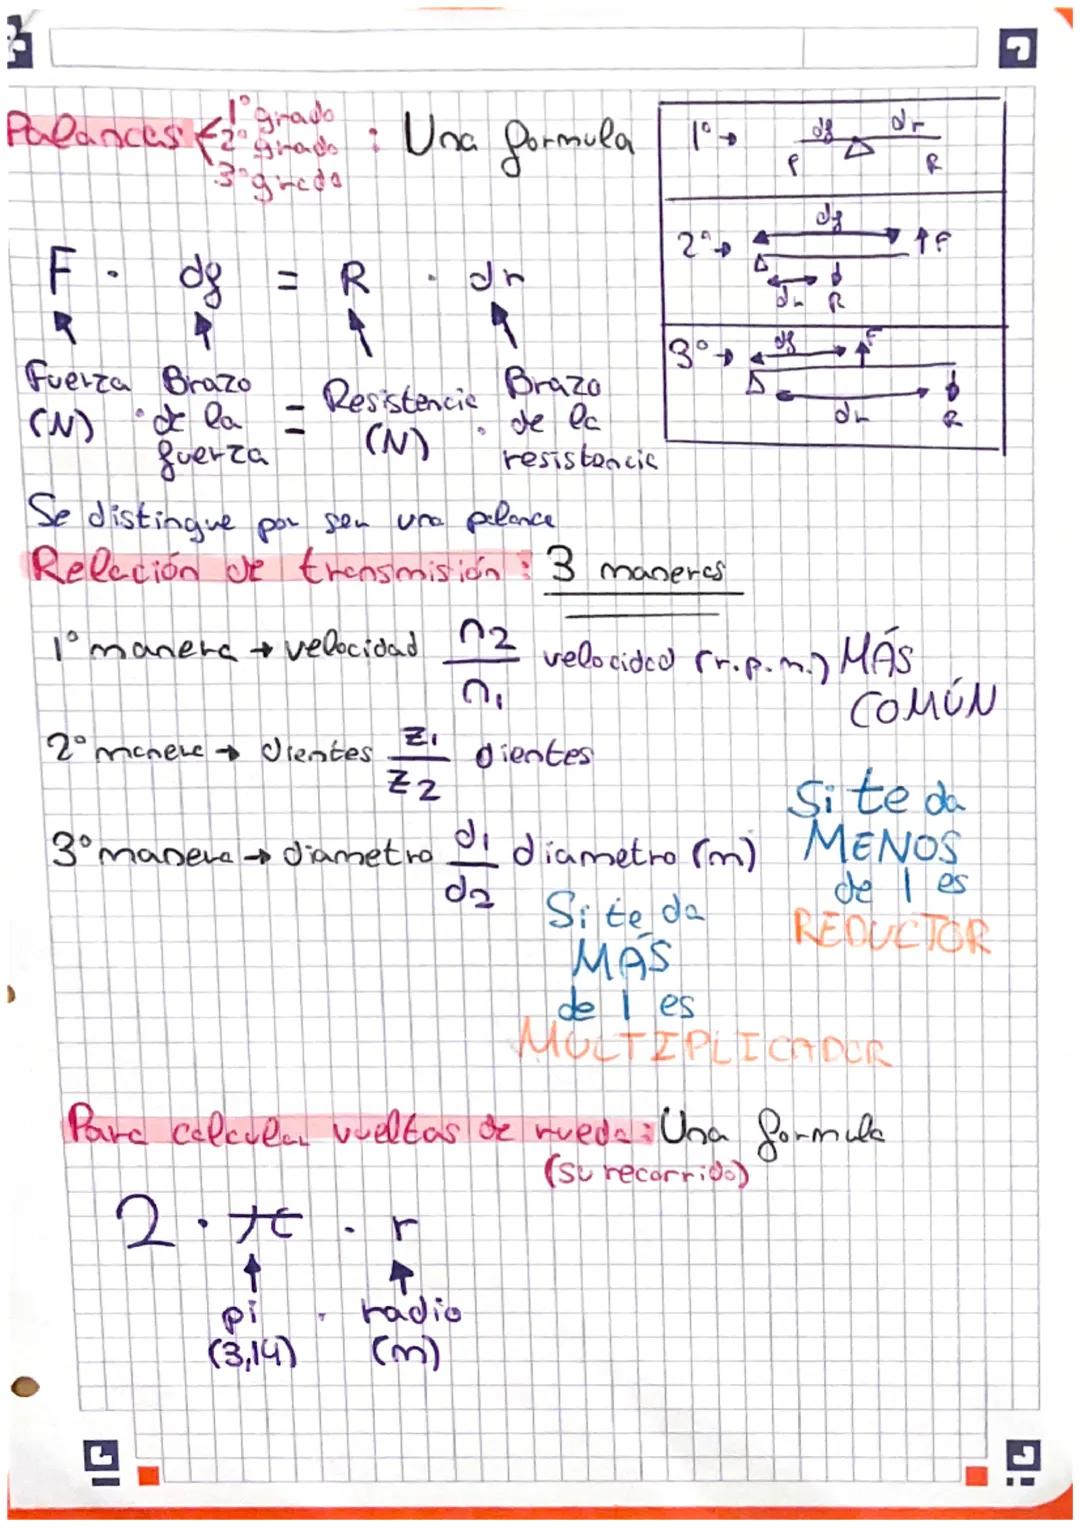 Palancas 1º grado
2º grado
3º grado
: Una formula
1º → df dr
P R
2º → df ↑F
dr R
3º → df F
dr R
F · df = R · dr
Fuerza (N) · Brazo de la fuerza = Resistencia (N) · Brazo de la resistencia
Se distingue por ser una palanca
Relación de transmisión: 3 maneras
1º manera → velocidad n2/n1 velocidad (r.p.m.) MÁS
COMÚN
2º manera → dientes z1/z2 dientes
3º manera → diametro d1/d2 diametro (m)
Si te da
MENOS
de 1 es
REDUCTOR
Si te da
MÁS
de 1 es
MULTIPLICADOR
Para calcular vueltas de rueda: Una formula
(su recorrido)
2 · π · r
pi · radio
(3,14) (m)